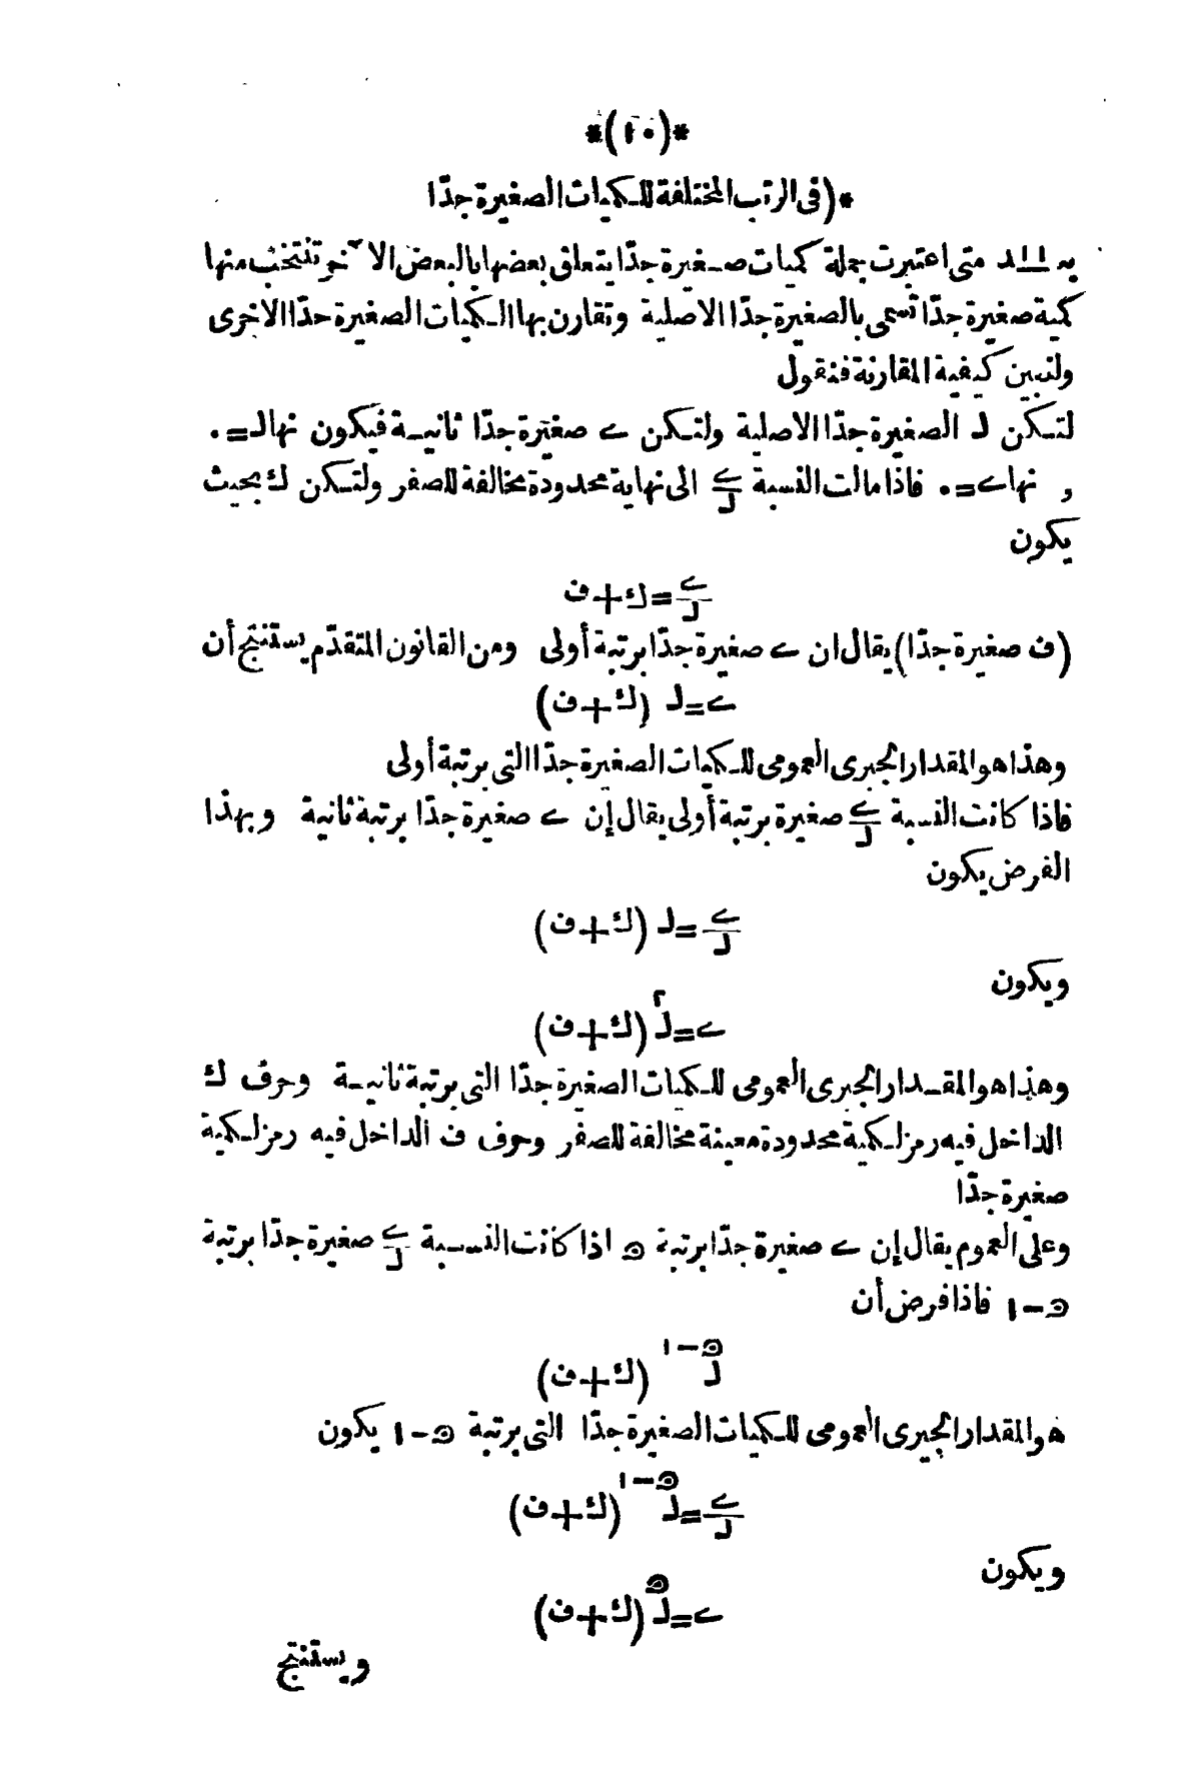 *(١٠)*
*(فى الرتب المختلفة للكميات الصغيرة جدّا
متى اعتبرت جملة كميات صغيرة جدّا يتعلق بعضها بالبعض الآخر تنتخب منها
كمية صغيرة جدّا تسمى بالصغيرة جدّا الاصلية وتقارن بها الكميات الصغيرة جدّا الاخرى
ولنبين كيفية المقارنة فنقول
لتكن لـ الصغيرة جدّا الاصلية ولتكن ے صغيرة جدّا ثانية فيكون نهالـ=٠
و نهاے=٠ فاذا مالت النسبة ے/لـ الى نهاية محدودة مخالفة للصفر ولتكن ك بحيث
يكون
ے/لـ=ك+ف
(ف صغيرة جدّا) يقال ان ے صغيرة جدّا برتبة أولى ومن القانون المتقدّم يستنتج أن
ے=لـ (ك+ف)
وهذا هو المقدار الجبرى العمومى للكميات الصغيرة جدّا التى برتبة أولى
فاذا كانت النسبة ے/لـ صغيرة برتبة أولى يقال إن ے صغيرة جدّا برتبة ثانية وبهذا
الفرض يكون
ے/لـ=لـ (ك+ف)
ويكون
ے=لـ^٢ (ك+ف)
وهذا هو المقدار الجبرى العمومى للكميات الصغيرة جدّا التى برتبة ثانية وحرف ك
الداخل فيه رمز لكمية محدودة معينة مخالفة للصفر وحرف ف الداخل فيه رمز لكمية
صغيرة جدّا
وعلى العموم يقال إن ے صغيرة جدّا برتبة ۵ اذا كانت النسبة ے/لـ صغيرة جدّا برتبة
۵-١ فاذا فرض أن
لـ^(۵-١) (ك+ف)
هو المقدار الجبرى العمومى للكميات الصغيرة جدّا التى برتبة ۵-١ يكون
ے/لـ=لـ^(۵-١) (ك+ف)
ويكون
ے=لـ^۵ (ك+ف)
ويستنتج